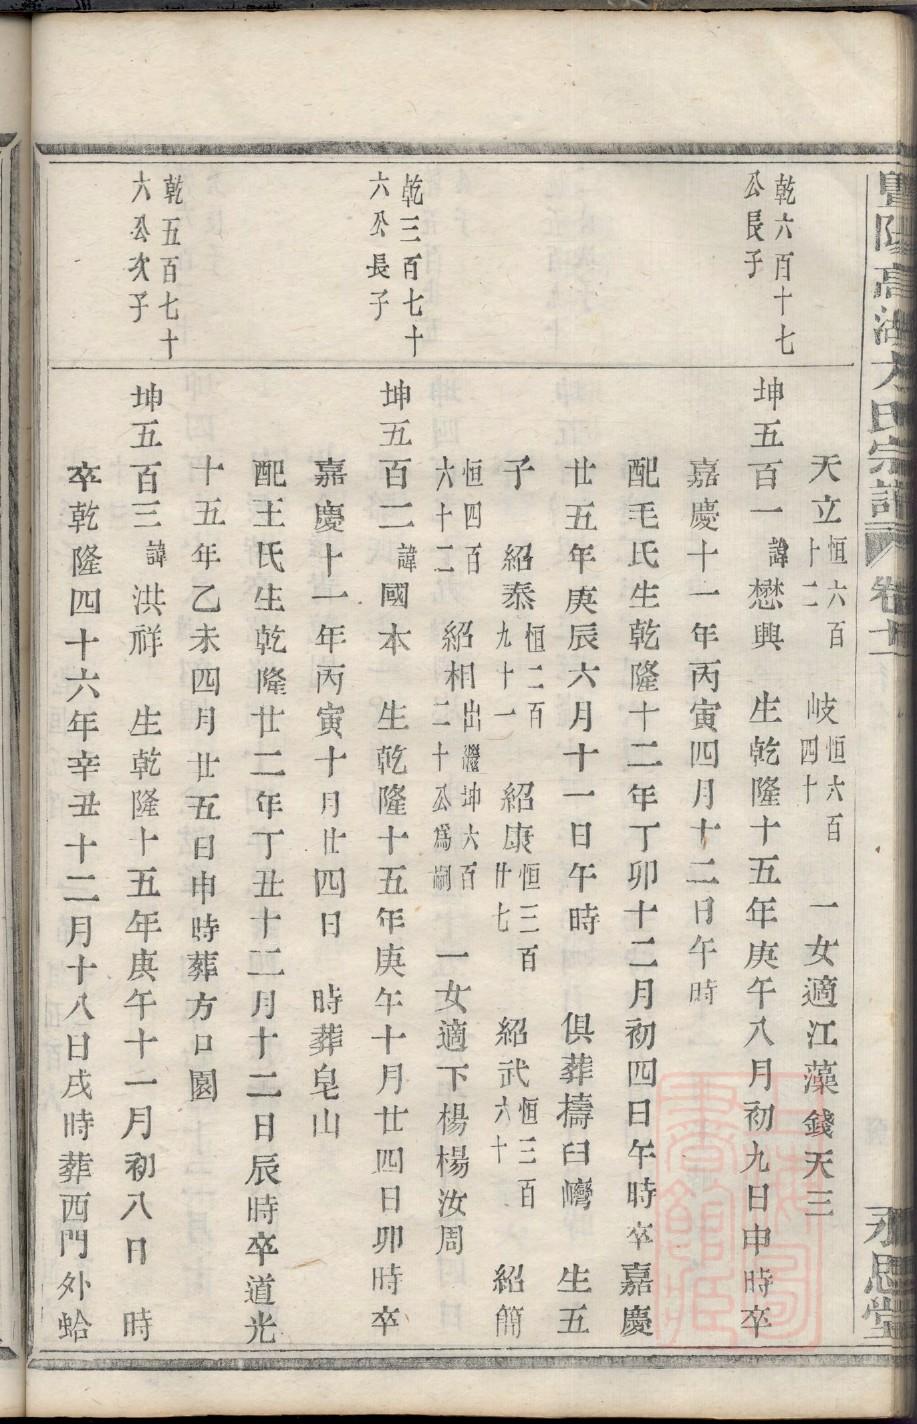 暨陽高湖方氏宗譜 卷十 永思堂
天立恒六百十二 岐恒六百四十 一女適江藻錢天三
乾六百十七公長子
坤五百一諱懋興 生乾隆十五年庚午八月初九日申時卒
嘉慶十一年丙寅四月十二日午時
配毛氏生乾隆十二年丁卯十二月初四日午時卒嘉慶
廿五年庚辰六月十一日午時 俱葬擣臼灣 生五
子 紹泰恒二百九十一 紹康恒三百廿七 紹武恒三百六十 紹簡
恒四百六十二 紹相出繼坤六百二十公爲嗣 一女適下楊楊汝周
乾三百七十六公長子
坤五百二諱國本 生乾隆十五年庚午十月廿四日卯時卒
嘉慶十一年丙寅十月廿四日 時葬皂山
配王氏生乾隆廿二年丁丑十二月十二日辰時卒道光
十五年乙未四月廿五日申時葬方口園
乾五百七十六公次子
坤五百三諱洪祥 生乾隆十五年庚午十一月初八日 時
卒乾隆四十六年辛丑十二月十八日戌時葬西門外蛤